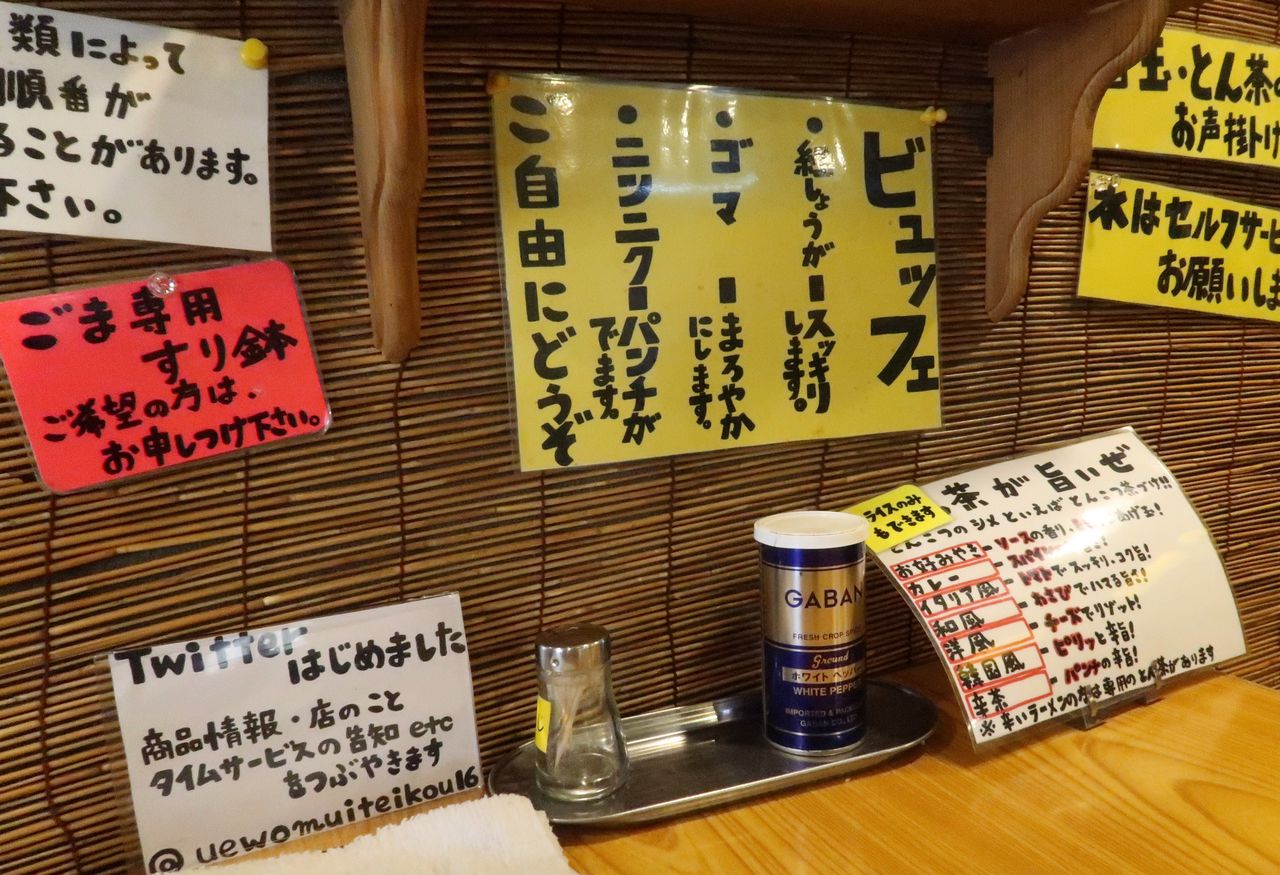 類によって
順番が
ることがあります。
下さい。
ごま専用
すり鉢
ご希望の方は、
お申しつけ下さい。
ビュッフェ
・紅しょうが-スッキリ
します。
・ゴマ -まろやか
にします。
・ニンニク-パンチが
でます。
ご自由にどうぞ
玉・とん茶の
お声掛け
水はセルフサービ
お願いしま
Twitter
はじめました
商品情報・店のこと
タイムサービスの告知etc
をつぶやきます
@uewomuiteikou16
GABAN
FRESH CROP
Ground
ホワイトペッパー
WHITE PEPPER
IMPORTED & PACKED
GABAN CO., LTD
ライスのみ
もできます
茶が旨いぜ
とんこつのシメといえばとんこつ茶づけ!!
お好みやき-ソースの香り、あげ玉!
カレー-スパイ
イタリア風-トマトでスッキリ、コク旨!
和風-わさびでハマる旨さ!
洋風-チーズでリゾット!
韓国風-ピリッと辛旨!
辛茶-パンチの辛旨!
※辛いラーメンの方は専用のとん茶があります